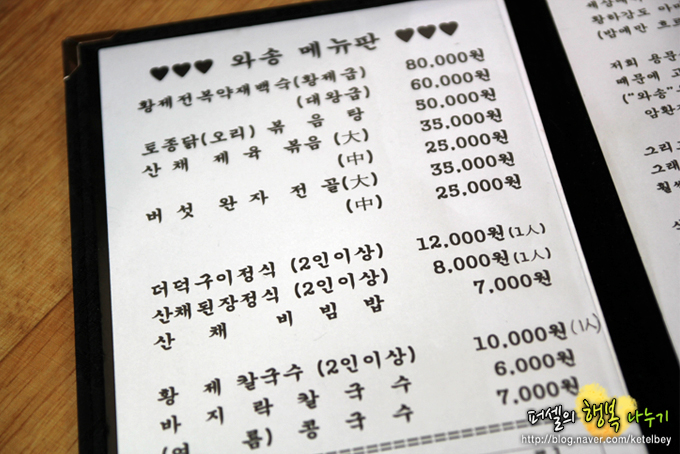 ♥♥♥ 와송 메뉴판 ♥♥♥
황제전복약재백숙(황제금) 80,000원
(대왕금) 60,000원
토종닭(오리) 볶음탕 50,000원
산채제육볶음(大) 35,000원
(中) 25,000원
버섯완자전골(大) 35,000원
(中) 25,000원
더덕구이정식 (2인이상) 12,000원(1人)
산채된장정식 (2인이상) 8,000원(1人)
산채비빔밥 7,000원
황제칼국수 (2인이상) 10,000원(1人)
바지락칼국수 6.000원
(여름)콩국수 7,000원
황하감도
저희 용문
때문에 고
("와송"
암환
그리고
그래
훨씬
퍼셀의 행복 나누기
http://blog.naver.com/ketelbey